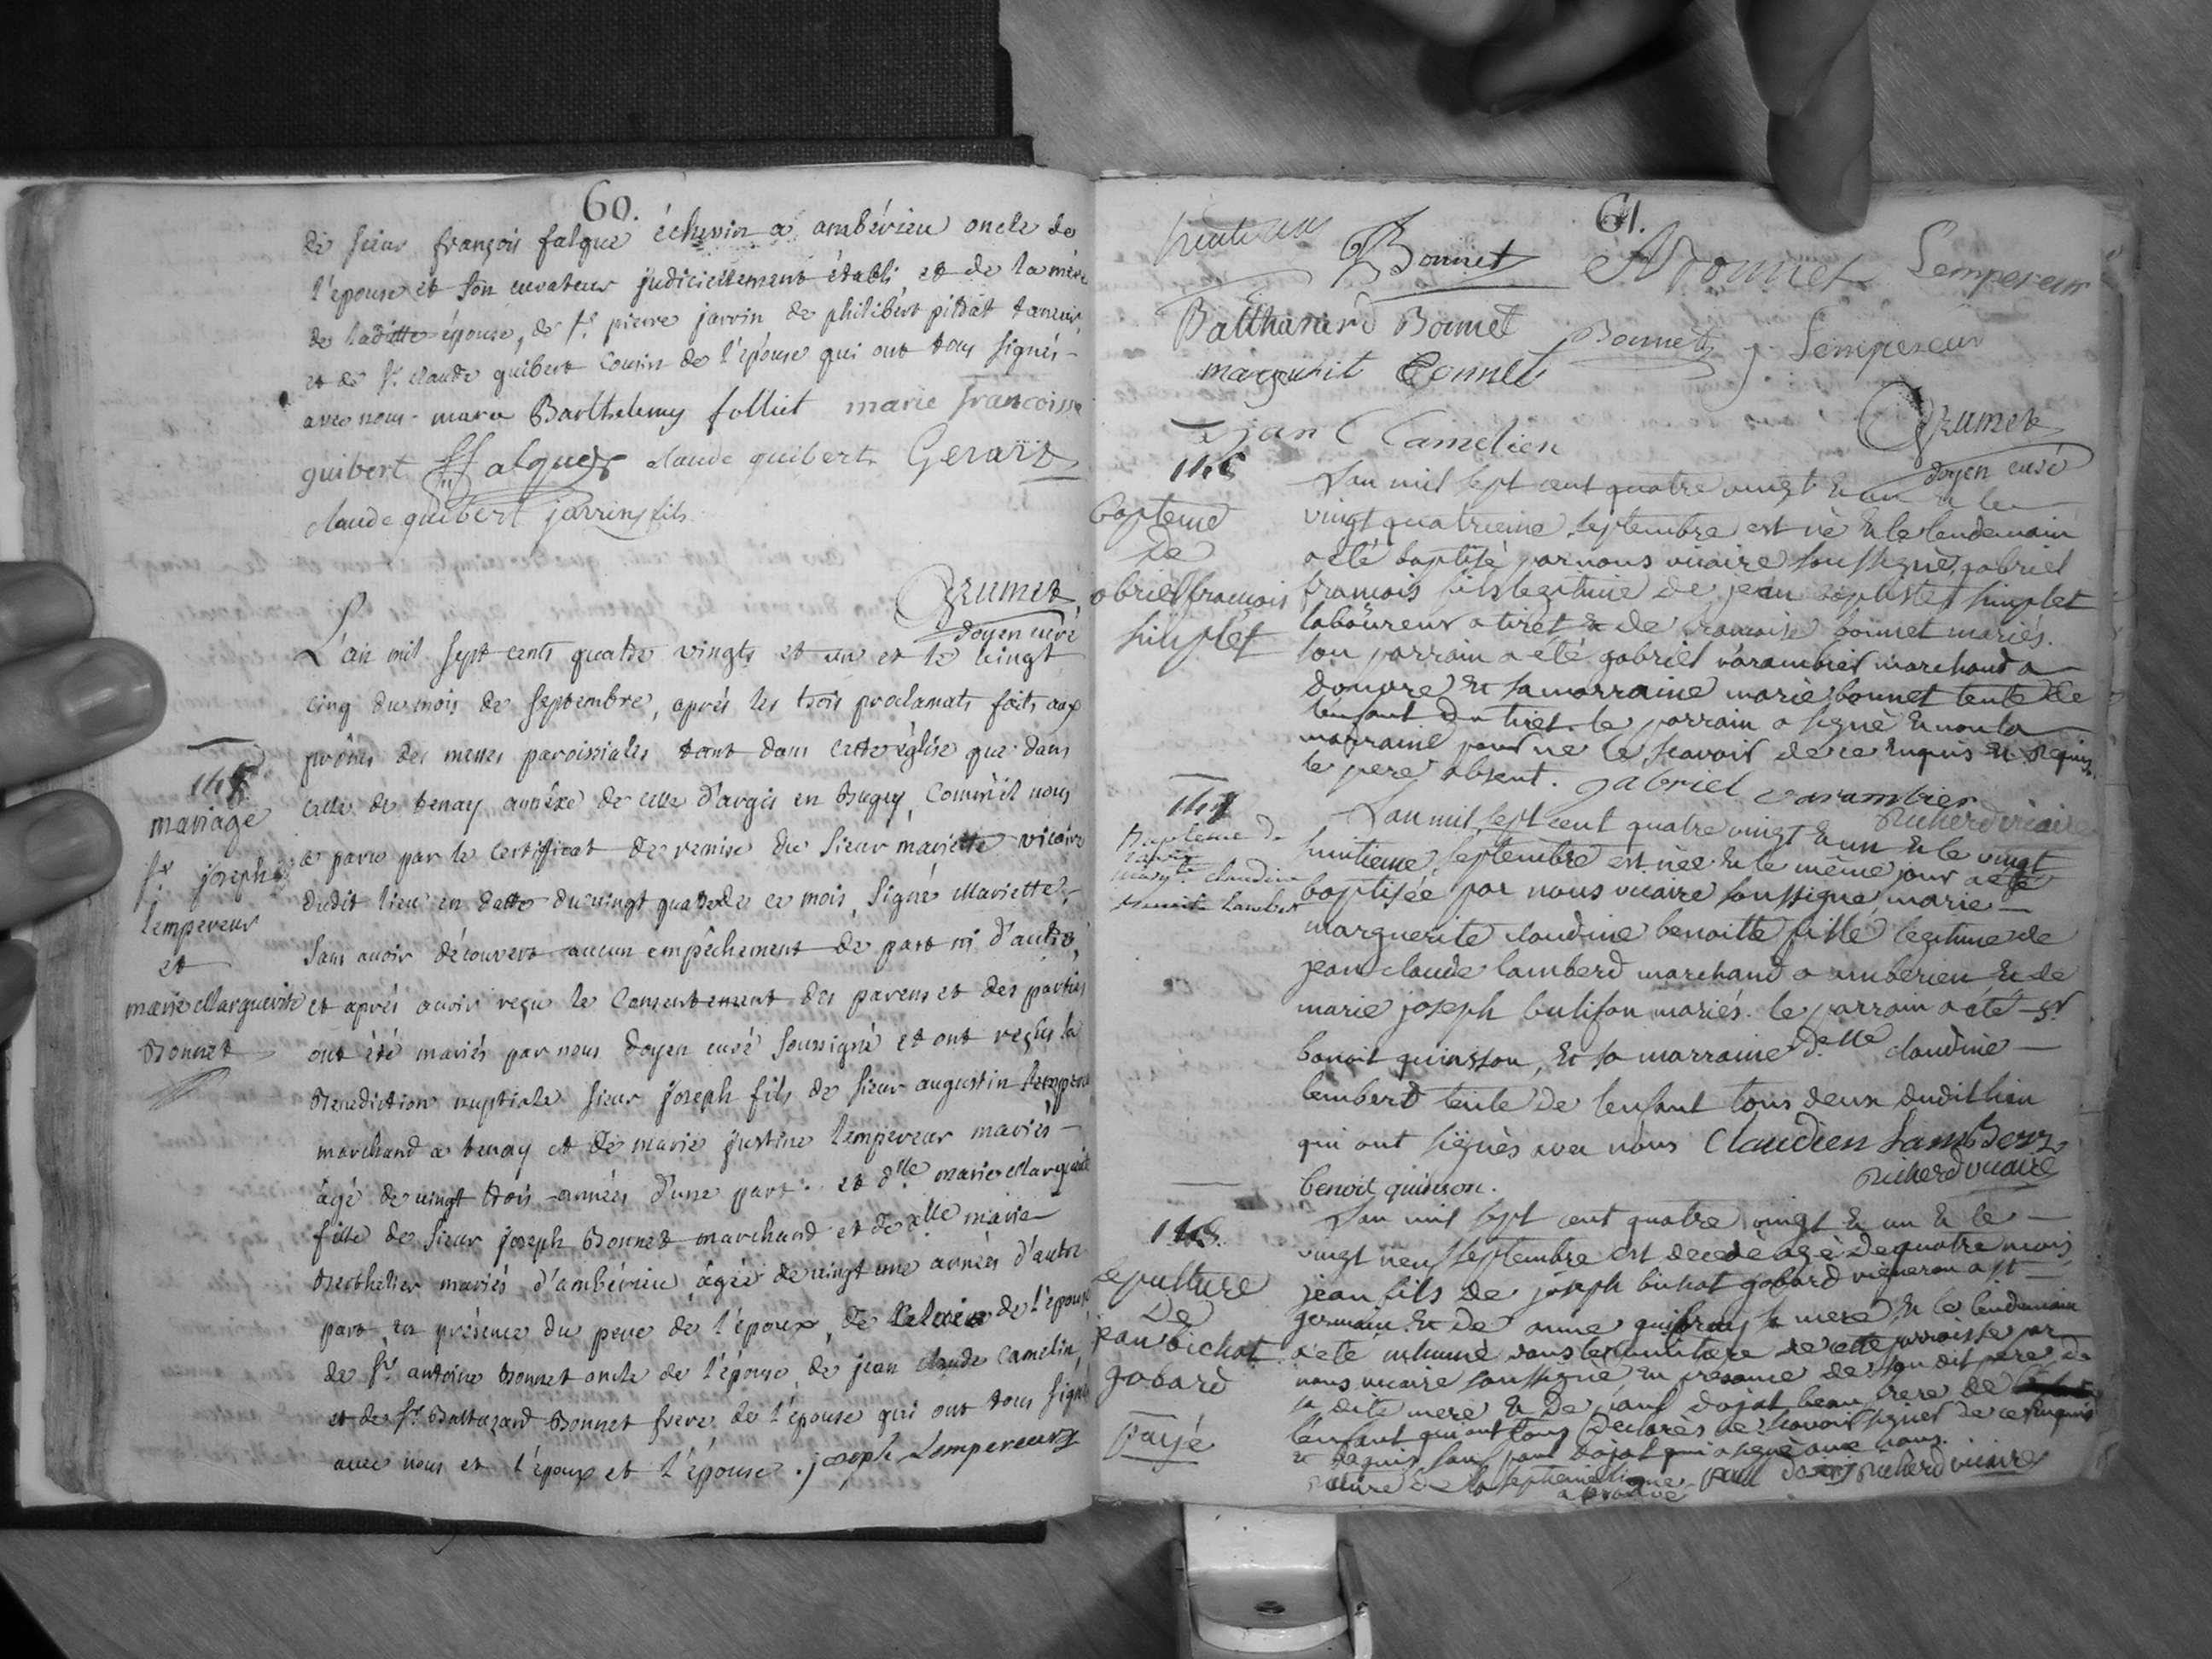 60.
de sieur françois falque échevin a ambérieu oncle de
l'epouse et son curateur judiciellement établi, et de la mère
de laditte épouse, de sr. pierre jarrin de philibert pittat taneur,
et de sr. claude guibert cousin de l'épouse qui ont tous signés -
avec nous. marie Barthelemy folliet marie francoisse
guibert ffalque claude guibert Gerard
claude guibert jarrin fils
Grumet,
doyen curé
L'an mil sept cents quatre vingts et un et le vingt
cinq du mois de septembre, aprés les trois proclamats faits aux
prônes des messes paroissiales tant dans cette église que dans
celle de tenay annéxe de celle d'argis en Bugey, comm'il nous
a paru par le certifficat de remise du sieur mariette vicaire
dudit lieu en datte du vingt quatre de ce mois, signé Mariette,
sans avoir découvert aucun empêchement de part ni d'autre,
et aprés avoir reçu le consentement des parens et des parties
ont été mariés par nous doyen curé soussigné et ont reçus la
Benediction nuptiale sieur joseph fils de sieur augustin
marchand a tenay et de marie justine lempereur mariés -
âgé de vingt trois années d'une part. et dlle marie Marguerite
fille de sieur joseph Bonnet marchand et de dlle marie
Berthelier mariés d'ambérieu, âgée de vingt une années d'autre
part en présence du pere de l'époux, de de l'épouse
de sr antoine Bonnet oncle de l'épouse, de jean claude Camelin,
et de sr. Baltazard Bonnet frere de l'épouse qui ont tous signé
avec nous et l'époux et l'épouse. joseph Lempereur
mariage
sr. joseph
lempereur
et
marie Marguerite
Bonnet
61.
Bonnet Lempereur
Balthazard Bonnet Bonnet j. Lempereur
marguerit Bonnet
jan C Camelien
Grumet
doyen curé
Bapteme
De
gabriel françois
simplet
L'an mil sept cent quatre vingt & un & le
vingt quatrieme septembre est né & le lendemain
a eté baptisé par nous vicaire soussigné, gabriel
francois fils legitime de jean baptiste simplet
laboureur a tiret & de francoise bonnet mariés.
son parrain a eté gabriel varambier marchand a
douvre & sa marraine marie bonnet tente de
l'enfant du tiret. le parrain a signé & non la
marraine pour ne le scavoir de ce enquis & requis
le pere absent. gabriel varambier
Richerd vicaire
147
Bapteme de
marie
claudine
benoite lambert
L'an mil sept cent quatre vingt & un & le vingt
huitieme septembre est née & le même jour a eté
baptisée par nous vicaire soussigné, marie -
marguerite claudine benoitte fille legitime de
jean claude lamberd marchand a amberieu & de
marie joseph bulifon mariés. le parrain a eté sr
benoit quinsson, & sa marraine d.elle claudine -
lamberd tente de l'enfant tous deux dudit lieu
qui ont signès avec nous Claudien Lambert
Richerd vicaire
benoit quinson.
148.
sepulture
De
jean bichat
gobard
payé
L'an mil sept cent quatre vingt & un & le -
vingt neuf septembre est decedé agé de quatre mois
jean fils de joseph bichat gobard vigneron a st
germain & de anne sa mere, & le lendemain
a eté inhumé dans le cimetiere de cette parroisse par
nous vicaire soussigné en presance de son dit pere de
sa dite mere & de paul dojat beau frere de
l'enfant qui ont tous declarés ne scavoir signer de ce enquis
& requis sauf paul dojat qui a signé avec nous.
rature de la septieme ligne paul dojat Richerd vicaire
aprouvé